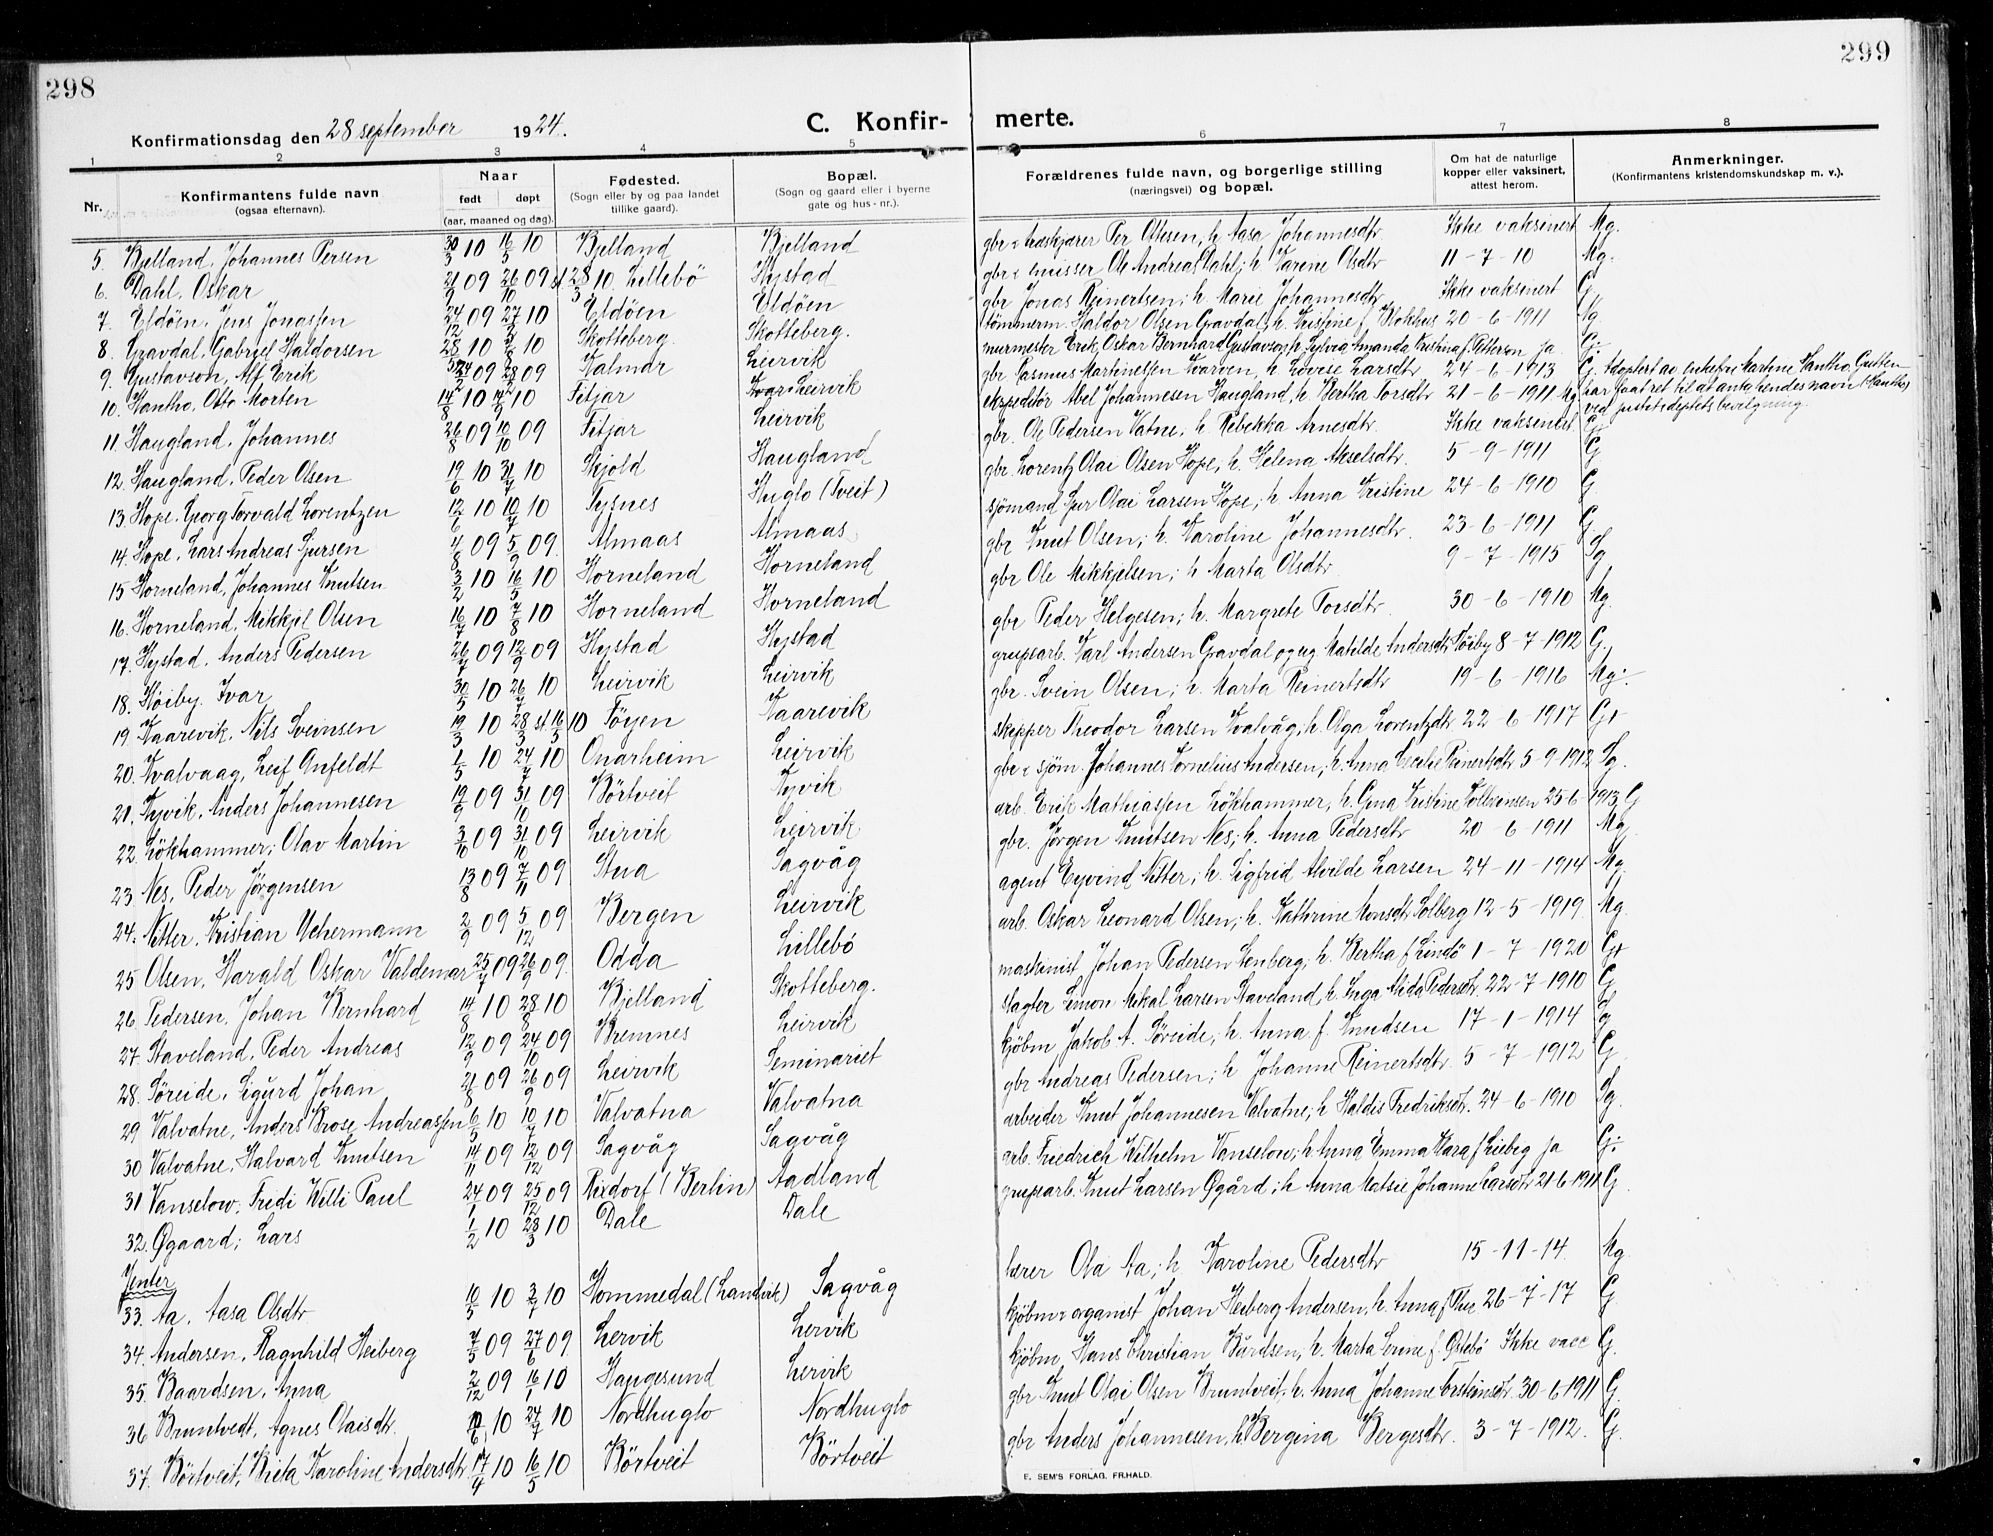 298
299
Konfirmationsdag den 28 september 1924.
C. Konfir-
merte.
1 2 3 4 5 6 7 8
Nr.
Konfirmantens fulde navn
(ogsaa efternavn).
Naar
født døpt
(aar, maaned og dag).
Fødested.
(Sogn eller by og paa landet
tillike gaard).
Bopæl.
(Sogn og gaard eller i byerne
gate og hus-nr.).
Forældrenes fulde navn, og borgerlige stilling
(næringsvei) og bopæl.
Om hat de naturlige
kopper eller vaksinert,
attest herom.
Anmerkninger.
(Konfirmantens kristendomskundskap m. v.).
5. Bjelland, Johannes Persen 30/3 10 16/5 10 Bjelland Bjelland gbr Per Ottesen, h. Aasa Johannesdtr Ikke vaksinert Mg.
6. Dahl, Oskar 21/9 09 26/10 09 st 28/3 10. Lillebö Hystad gbr & emisser Ole Andreas Dahl; h. Karine Olsdtr 11-7-10 Mg.
7. Eldöen, Jens Jonassen 24/12 09 27/2 10 Eldöen Eldöen gbr Jonas Reinertsen; h. Marie Johannesdtr Ikke vaksinert G
8. Gravdal, Gabriel Haldorsen 28/ 10 10 Skotteberg. Skotteberg. tömmerm. Haldor Olsen Gravdal, h. Kristine f. Blokhus 20-6-1911 Sg.
9. Gustavson, Alf Erik 09 28/ 09 Kalmar Leirvik murmester Erik Oskar Bernhard Gustavson, h. Sylvia Amanda Kristina f. Petterson ja G.
10. Hantho, Otto Morten 14/8 10 14/9 10 Fitjar Leirvik gbr Rasmus Martinussen Tvarven, h. Lovise Larsdtr 24-6-1913 G. Adoptert av enkefru Martine Hantho. Gutten
har faat ret til at anta hendes navn (Hantho)
ved justitsdeptets bevilgning.
11. Haugland, Johannes 26/8 09 10/10 09 Fitjar Leirvik ekspeditör Abel Johannesen Haugland, h. Bertha Torsdtr 21-6-1911 Mg
12. Haugland, Peder Olsen 19/6 10 31/7 10 Skjold Haugland gbr. Ole Pedersen Vatne, h. Rebekka Arnesdtr. Ikke vaksinert. G
13 Hope, Georg Torvald Lorentzen 12/6 10 10/7 10 Tysnes Huglo (Tveit) gbr. Lorentz Olai Olsen Hope; h. Helena Akselsdtr. 5-9-1911 G
14. Hope, Lars Andreas Sjursen 4/8 09 5/9 09. Almaas Almaas sjömand Sjur Olai Larsen Hope; h. Anna Kristine 24-6-1910 G
15 Horneland, Johannes Knutsen 3/2 10 16/5 10 Horneland Horneland gbr Knut Olsen; h. Karoline Johannesdtr. 23-6-1911 G.
16. Horneland, Mikkjel Olsen 16/7 10 7/8 10 Horneland Horneland gbr Ole Mikkjelsen; h Marta Olsdtr 9-7-1915 Sg
17. Hystad, Anders Pedersen 26/7 09 12/9 09 Hystad Hystad gbr Peder Helgesen; h. Margrete Torsdtr 30-6-1910 Mg.
18. Höiby, Ivar 30/5 10 26/7 10 Leirvik Leirvik grubearb. Karl Andersen Gravdal og ug. Matilde Andersdtr Höiby 8-7-1912 G.
19. Kaarevik, Nils Sveinsen 19/3 10 28/3 st 16/5 10 Föyen Kaarevik gbr. Svein Olsen; h. Marta Reinertsdtr 19-6-1916 Mg.
20. Kvalvaag, Leif Anfeldt 1/5 10 24/7 10 Onarheim Leirvik skipper Theodor Larsen Kvalvåg; h. Olga Lorentzdtr 22-6-1917 G+
21. Kyvik, Anders Johannesen 19/9 09 31/10 09 Börtveit Kyvik gbr & sjöm. Johannes Kornelius Andersen, h. Anna Cecilie Reinertsdtr 5-9-1912 Sg.
22. Lökhammer, Olav Martin 3/10 09 31/10 09 Leirvik Leirvik arb. Erik Mathiassen Lökhammer, h. Gina Kristine Tollevsen 25-6-1913. G
23. Nes, Peder Jörgensen 13/8 09 7/11 09 Stua Sagvåg gbr. Jörgen Knutsen Nes; h. Anna Pedersdtr 20-6-1911 Mg
24. Nitter, Kristian Uchermann 2/9 09 5/12 09 Bergen Leirvik agent Eyvind Nitter; h. Sigfrid Alvilde Larsen 24-11-1914 Mg.
25 Olsen, Harald Oskar Valdemar 25/7 09 26/9 09. Odda Lillebö arb. Oskar Leonard Olsen; h. Kathrine Monsdtr Solberg 12-5-1919. Mg
26. Pedersen, Johan Bernhard 14/8 10 28/8 10 Bjelland Skotteberg. maskinist Johan Pedersen Stenberg; h. Bertha f. Lindö 1-7-1920 G+
27. Staveland, Peder Andreas 12/9 09 24/10 09 Bremnes Leirvik slagter Simon Mikal Larsen Staveland, h. Inga Alida Pedersdtr. 22-7-1910 G
28. Söreide, Sigurd Johan 21/8 09 26/9 09 Leirvik Seminariet kjöbm. Jakob A. Söreide; h. Anna f. Knudsen 17-1-1914 Sg
29 Valvatne, Anders Brose Andreassen 6/5 10 10/7 10 Valvatna Valvatna gbr Andreas Pedersen; h Johanne Reinertsdtr. 5-7-1912 G.
30 Valvatne, Halvard Knutsen 14/11 09 12/12 09 Sagvåg Sagvåg arbeider Knut Johannesen Valvatne; h Haldis Fredriksdtr. 24-6-1910 Sg.
31 Vanselow, Fredi Willi Paul 24/1 09 25/12 09 Rixdorf (Berlin) Aadland arb. Friedrich Wilhelm Vanselow; h Anna Emma Klara f Liebig ja G.
32. Øgaard; Lars 1/2 10 28/3 10 Dale Dale grubearb. Knut Larsen Øgård; h Anna Matsie Johanne Larsdtr 21-6-1911 G
Jenter
33. Aa, Aasa Olsdtr 10/5 10 3/7 10 Hommedal (Landvik) Sagvåg lærer Ola Aa; h. Karoline Pedersdtr 15-11-14. Mg.
34. Andersen, Ragnhild Heiberg 7/5 09 27/6 09 Lervik Lervik kjöbm & organist Johan Heiberg Andersen, h. Anna f. Thu 26-7-17 G
35. Baardsen, Anna 2/12 09 16/1 10 Haugesund Lervik kjöbm. Hans Christian Bårdsen; h. Marta Serine f. Østebö Ikke vacc G.
36 Bruntvedt, Agnes Olaisdtr. 6 10 24/7 10 Nordhuglo Nordhuglo gbr Knut Olai Olsen Bruntveit, h. Anna Johanne Torsteinsdtr. 30-6-1911 G.
37. Börtveit, Brita Karoline Andersdtr 17/4 10 16/5 10 Börtveit Börtveit gbr Anders Johannesen, h. Bergina Bergesdtr. 3-7-1912. G.
E. SEM'S FORLAG, FR.HALD.